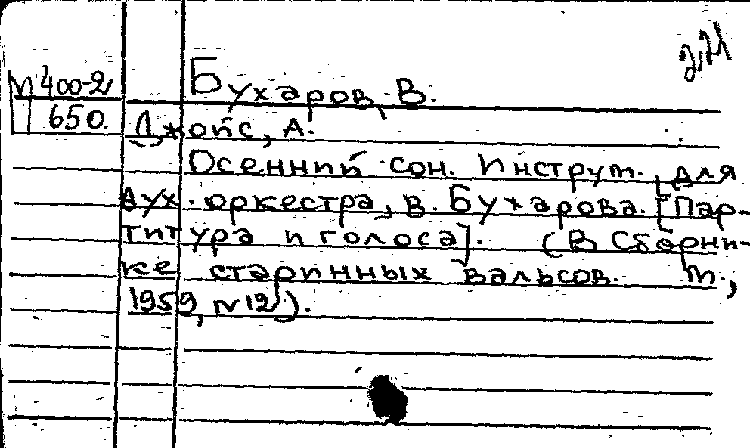 2.21
П 400-2
650.
Бухаров, В.
Джойс, А.
Осенний сон. Инструм. для
дух. оркестра, в. Бухарова. [Пар-
титура и голоса]. (В Сборни-
ке старинных вальсов. М.,
1959, №12).